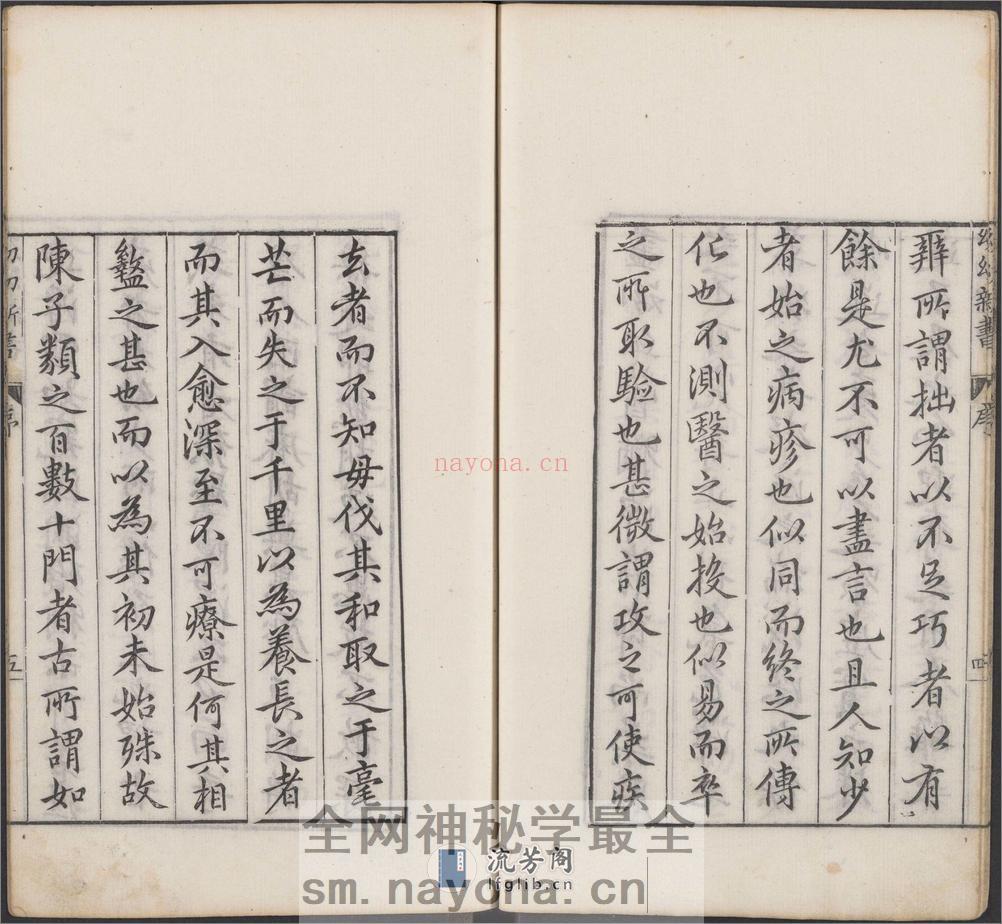 幼幼新書
序
四
辭所謂拙者以不足巧者以有
餘是尤不可以盡言也且人知少
者始之病疹也似同而終之所傳
化也不測醫之始投也似易而卒
之所取驗也甚微謂攻之可使疾
去者而不知毋伐其和取之于毫
芒而失之于千里以為養長之者
而其入愈深至不可療是何其相
盭之甚也而以為其初未始殊故
陳子類之百數十門者古所謂如
幼幼新書
序
五
nayona.cn
全网神秘学最全
流芳阁
lfglib.cn
sm.nayona.cn